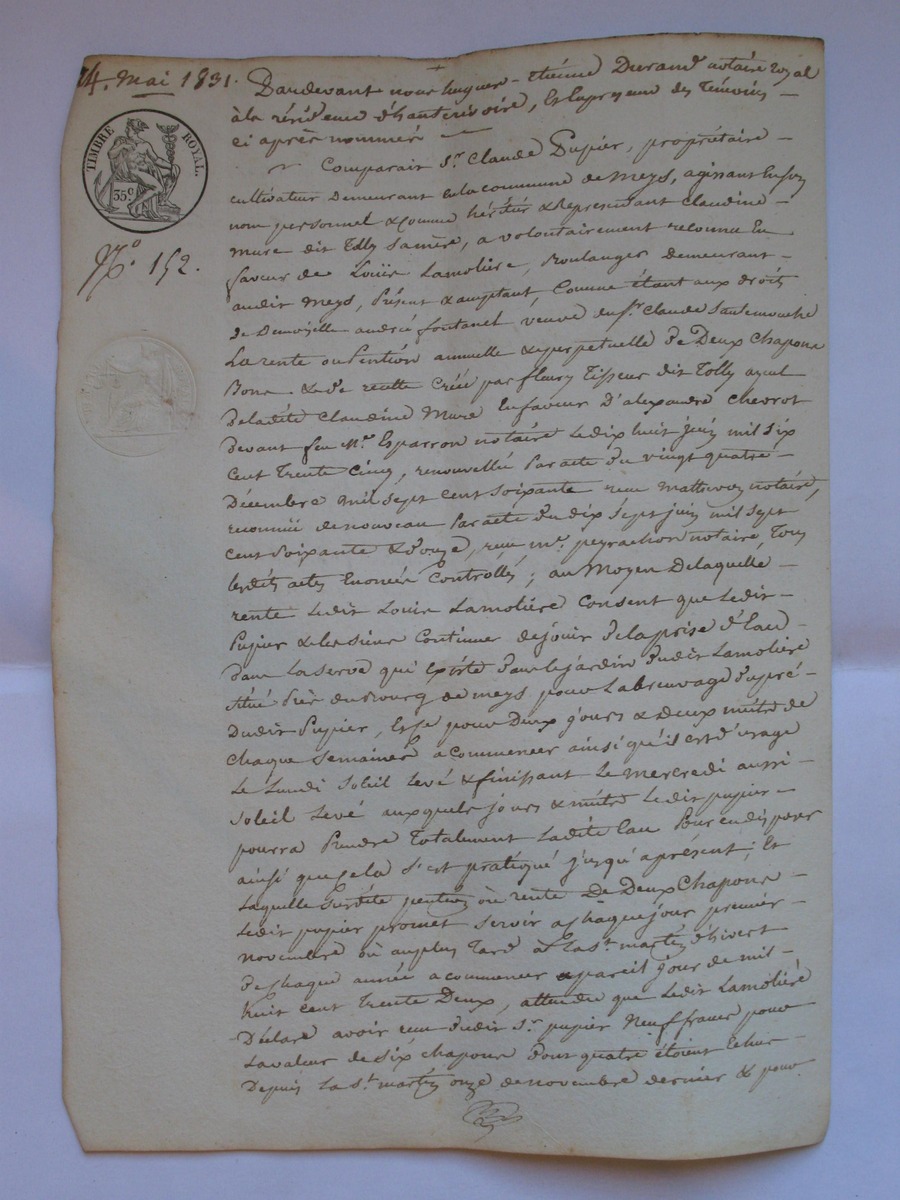 24. Mai 1831.
TIMBRE ROYAL.
35c
No. 152.
Pardevant nous hugues-étiénne Durand notaire royal
à la résidence d'hauterivoire, et en presence des témoins
ci après nommés
Comparait Sr. Claude Pupier, propriétaire
cultivateur demeurant en la commune de Meys, agissant en son
nom personnel & comme héritier & Représentant Claudine
Mure dit Tolly sa mère, a volontairement reconnu En
faveur de Louis Lamolière, Boulanger demeurant
audit Meys, Présent & acceptant, comme étant aux droits
de Demoiselle andrée fontanel veuve du Sr. Claude
La rente ou Pention annuelle & perpetuelle de Deux Chapons
Bons & de recette créée par fleury Tisseur dit Tolly ayeul
de ladite Claudine Mure En faveur D'alexandre Chevrot
devant feu Me. Esparron notaire le dix huit juin mil six
cent trente cinq, renouvellée par acte du vingt quatre
Décembre mil sept cent soixante recu Mathevon notaire,
reconnue de nouveau par acte du dix sept juin mil sept
cent soixante & douze, recu me. peyrachon notaire, tous
lesdits actes Enoncés Controllés; au Moyen de laquelle
rente ledit Louis Lamolière consent que ledit
Pupier & les siens continuer de jouir de la prise d'Eau
dans la serve qui existe dans le jardin dudit Lamolière
situé Près du Bourg de Meys pour L'abreuvage du pré
Dudit Pupier, Et ce pour Deux jours & Deux nuits de
chaque semaine a commencer ainsi qu'il est d'usage
Le Lundi Soleil Levé & finissant Le Mercredi aussi
Soleil Levé auxquels jours & nuits ledit pupier
pourra Prendre Totalement Ladite Eau
ainsi que cela s'est pratiqué jusqu'apresent; Et
Laquelle susdite pention ou rente De Deux Chapons
ledit pupier promet servir a chaque jour premier
novembre ou au plus Tard à La St. martin d'hivert
de chaque année a commencer a pareil jour de mil
huit cent trente Deux, attendu que ledit Lamolière
Déclare avoir recu dudit Sr. pupier Neuf francs pour
La valeur de six chapons dont quatre étoient Echus
Depuis La St. martin onze de novembre dernier & pour